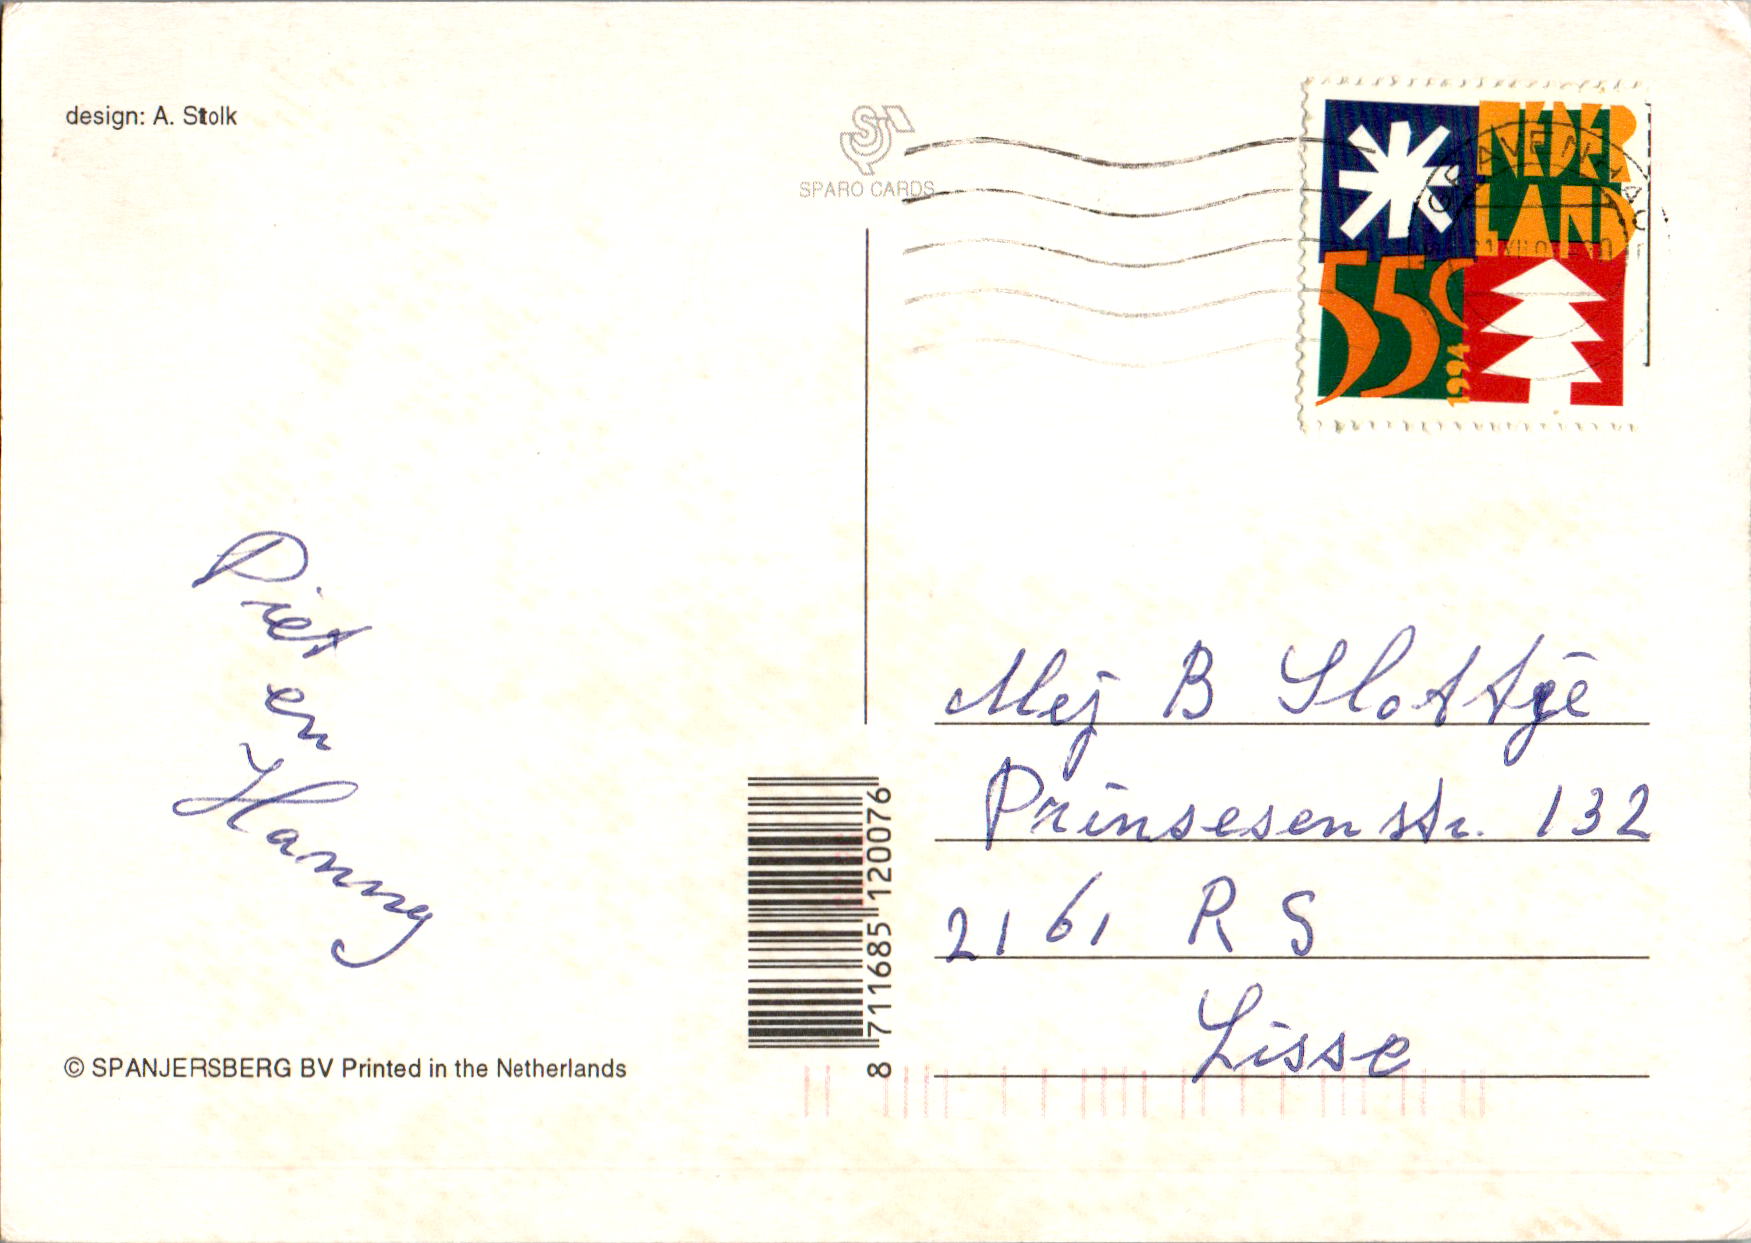 design: A. Stolk
SPARO CARDS
NEDER
LAND
55c
1994
Piet
en
Hanny
Mej B Slottje
Prinsesenstr. 132
2161 RS
Lisse
8 711685 120076
© SPANJERSBERG BV Printed in the Netherlands